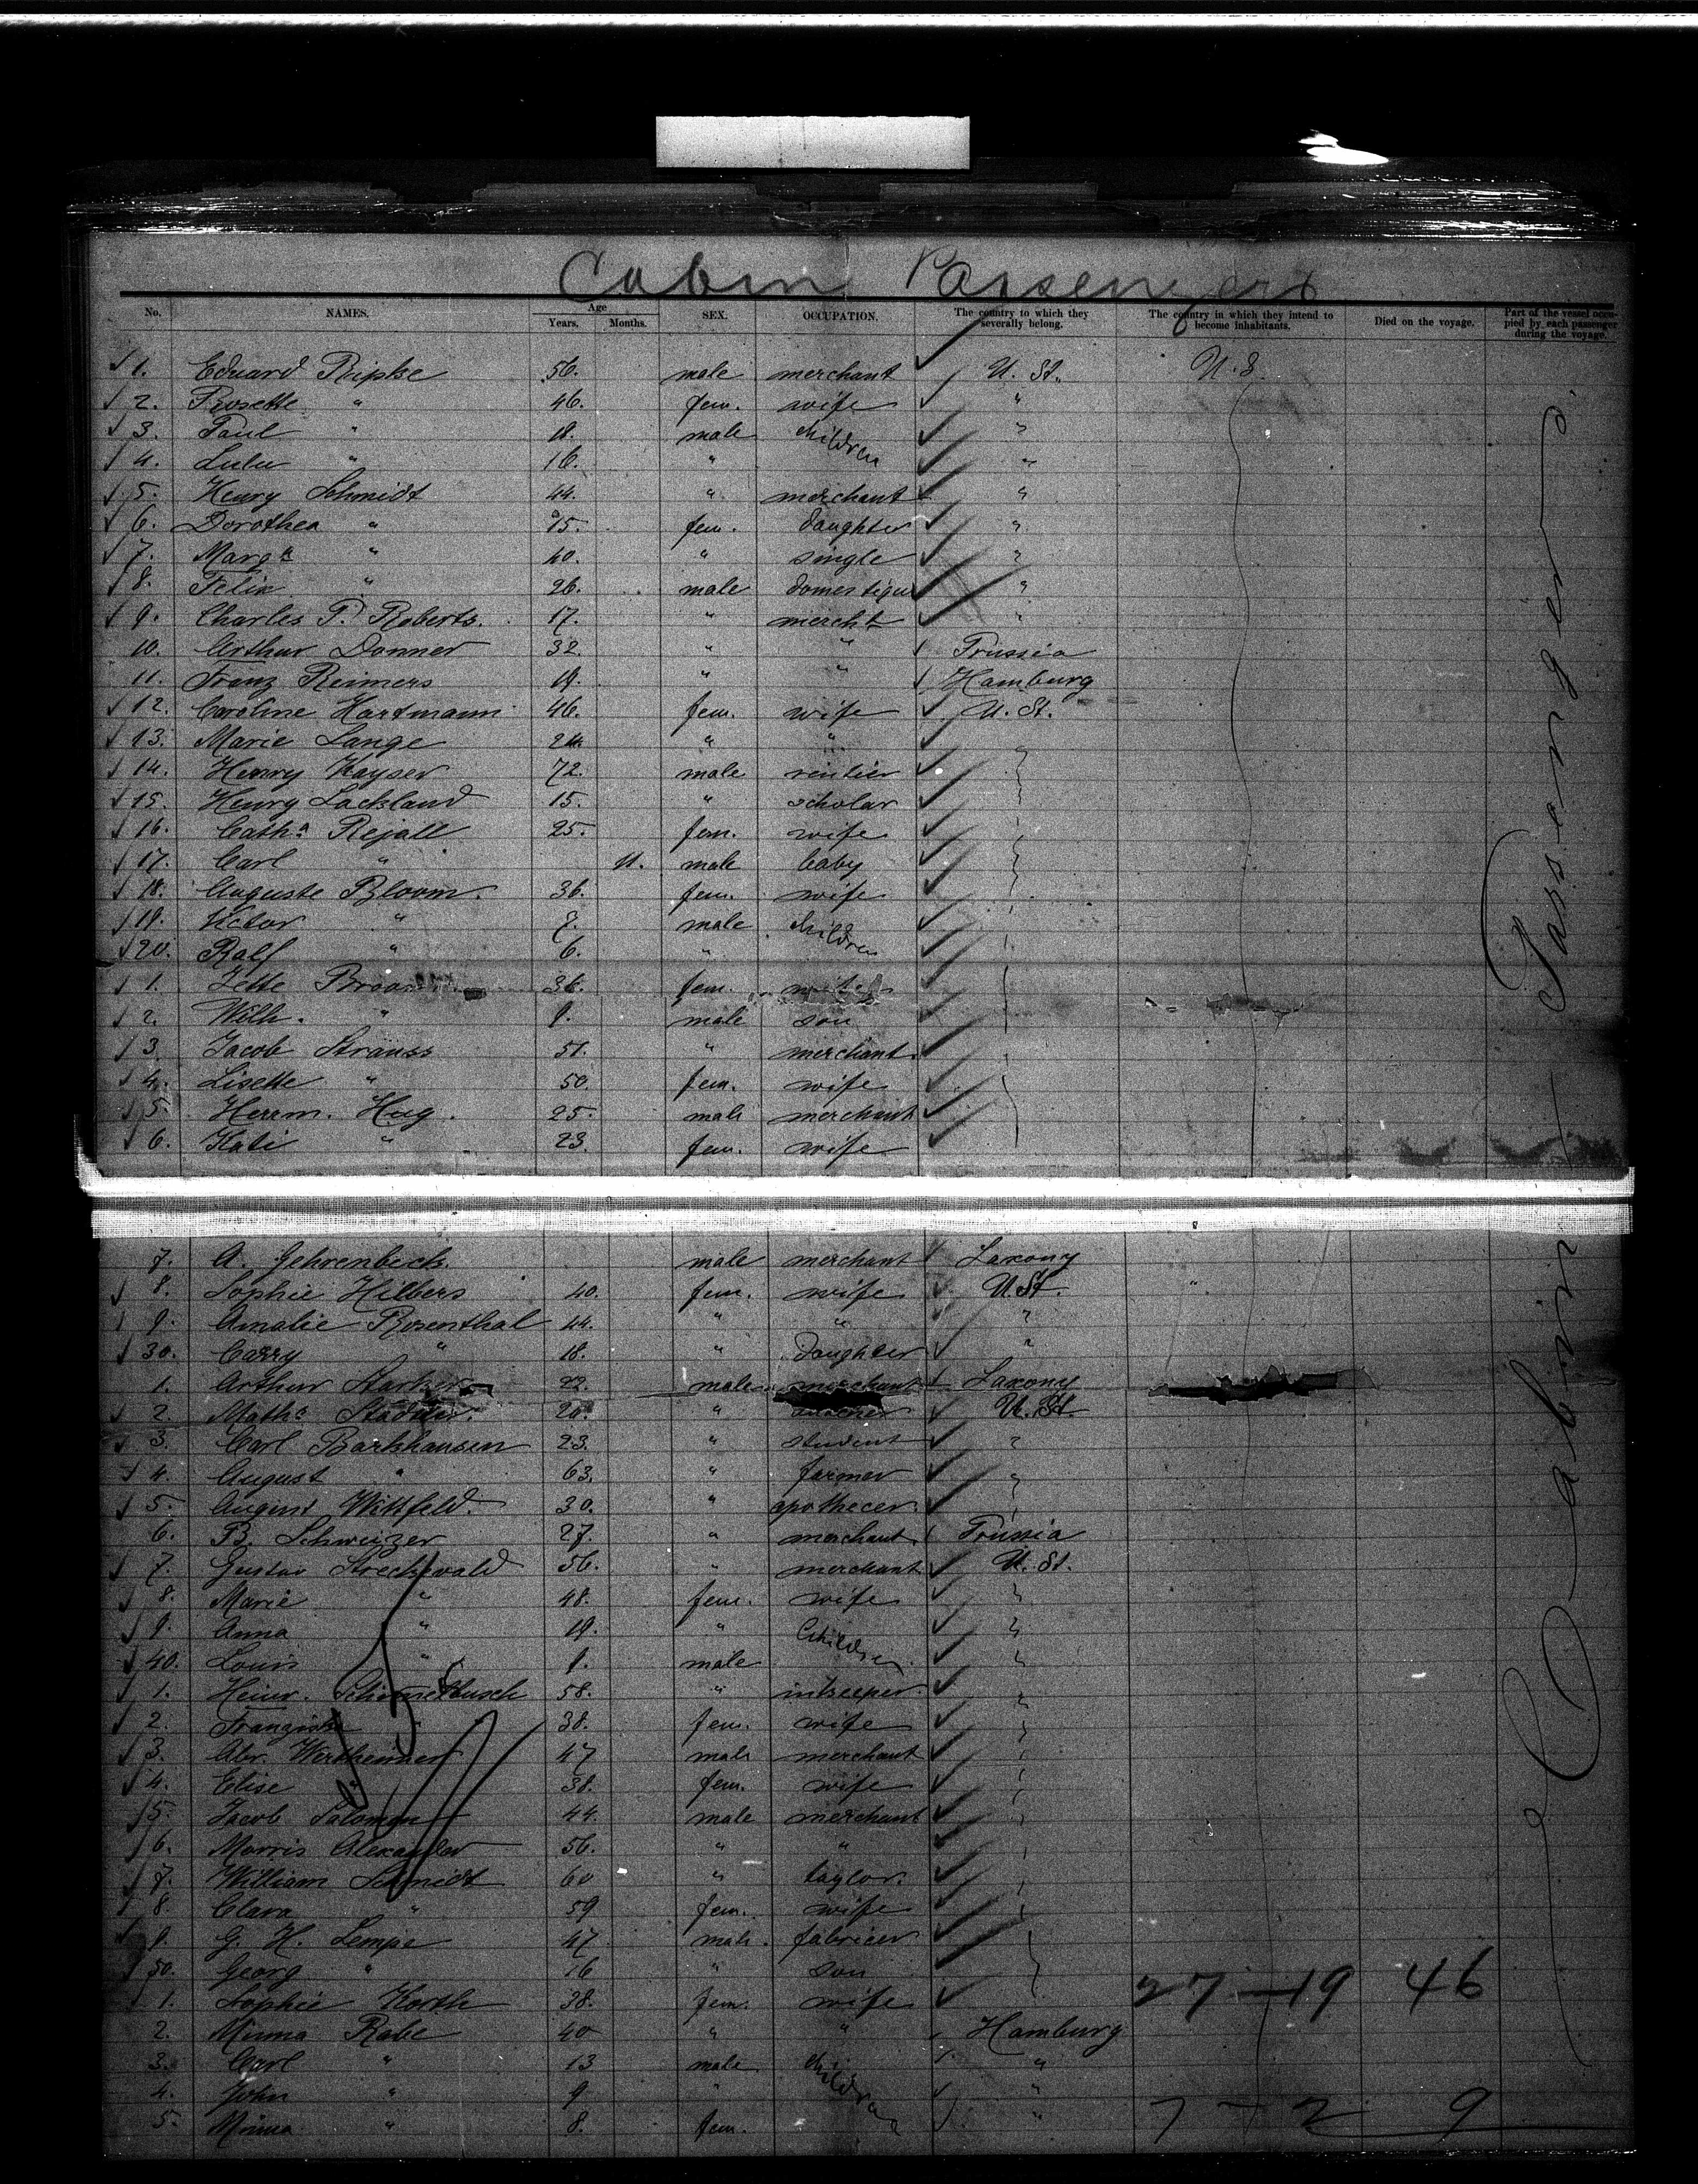 Cabin Passengers
No. NAMES. Age Years. Months. SEX. OCCUPATION. The country to which they severally belong. The country in which they intend to become inhabitants. Died on the voyage. Part of the vessel occupied by each passenger during the voyage.
1. Eduard Ripke 56. male merchant U. St. U. S.
2. Rosette " 46. fem. wife "
3. Paul " 18. male children "
4. Lulu " 16. " "
5. Henry Schmidt 44. " merchant "
6. Dorothea " 15. fem. daughter "
7. Marga " 40. " single "
8. Felix " 26. male domestique "
9. Charles P. Roberts. 17. " mercht "
10. Arthur Donner 32. " " Prussia
11. Franz Reimers 19. " " Hamburg
12. Caroline Hartmann 46. fem. wife U. St.
13. Marie Lange 24. " "
14. Henry Kayser 72. male rentier
15. Henry Lackland 15. " scholar
16. Catha Rejall 25. fem. wife
17. Carl " 11. male baby
18. Auguste Bloom. 36. fem. wife
19. Victor " 7. male children
20. Ralf " 6. "
1. Jette 36. fem. wife
2. Wilh. " 9. male son
3. Jacob Strauss 51. " merchant
4. Lisette " 50. fem. wife
5. Herrm. Hug. 25. male merchant
6. Kati " 23. fem. wife
7. A. Gehrenbeck. male merchant Saxony
8. Sophie Hilbers 40. fem. wife U. St. "
9. Amalie Rosenthal 44. " " "
30. Carry " 18. " daughter "
1. Arthur 22. male merchant Saxony
2. Maths 20. " U. St.
3. Carl Barkhausen 23. " student "
4. August " 63. " farmer "
5. August Wittfeld. 30. " apothecer.
6. B. Schweizer 27. " merchant Prussia
7. Gustav Streckewald 56. " merchant U. St.
8. Marie " 48. fem. wife
9. Anna " 19. " Children
40. Louis " 9. male
1. Heinr. Schimmelbusch 58. " inkeeper.
2. Franziska " 38. fem. wife
3. Abr. Wertheimer 47 male merchant
4. Elise 38. fem. wife
5. Jacob Salomon 44. male merchant
6. Morris Alexander 56. " "
7. William Schmidt 60 " taylor.
8. Clara " 59 fem. wife
9. G. H. Lempe 47 male. fabricer
50. Georg " 16 " son
1. Sophie Korth 38. fem. wife 27 - 19 46
2. Minna Rabe 40 " " Hamburg
3. Carl " 13 male children "
4. John " 9 " "
5. Minna " 8. fem. " 7 - 2 9
Cabin Passengers